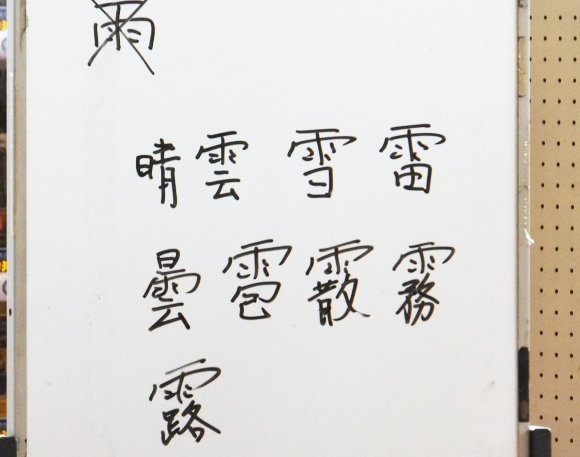 雨
晴雲 雪 雷
曇 雹 霰 霧
露